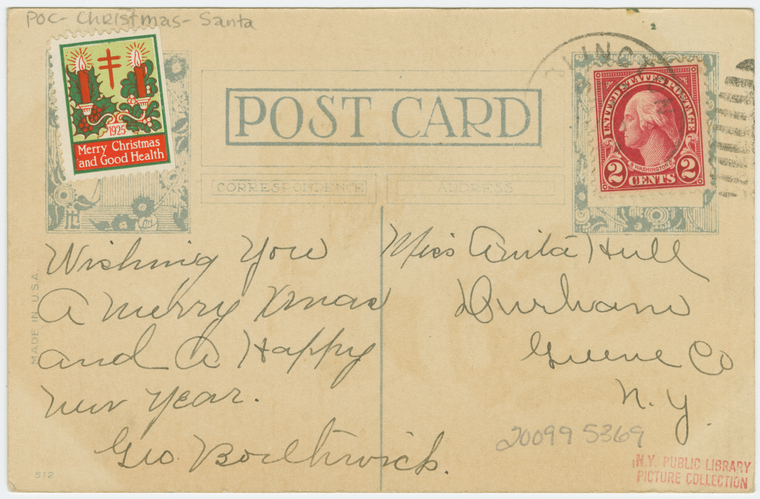 POC- Christmas- Santa
1925
Merry Christmas
and Good Health
POST CARD
CORRESPONDENCE
ADDRESS
UNITED STATES POSTAGE
WASHINGTON
2 CENTS 2
MADE IN U.S.A.
Wishing You
A Merry Xmas
and A Happy
New Year.
Geo. Borthwick.
Miss Anita Hull
Durham
Greene Co
N.Y.
20099 5369
N.Y. PUBLIC LIBRARY
PICTURE COLLECTION
512